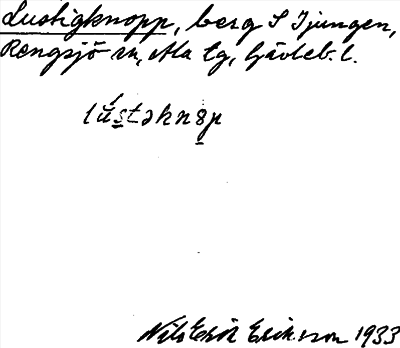 Lustigknopp, berg S Ijungen,
Rengsjö sn, Ala tg, Gävleb. l.
Nils Erik Eriksson 1933